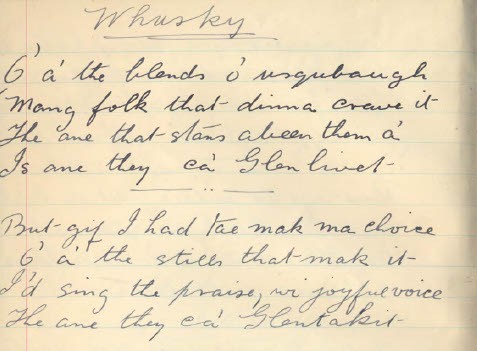 Whusky
O' a' the blends o' usqubaugh
'Mang folk that dinna crave it
The ane that stan's abeen them a'
Is ane they ca' Glenlivet
But gif I had tae mak ma choice
O' a' the stills that mak it
I'd sing the praise, wi' joyful voice
The ane they ca' Glentakit